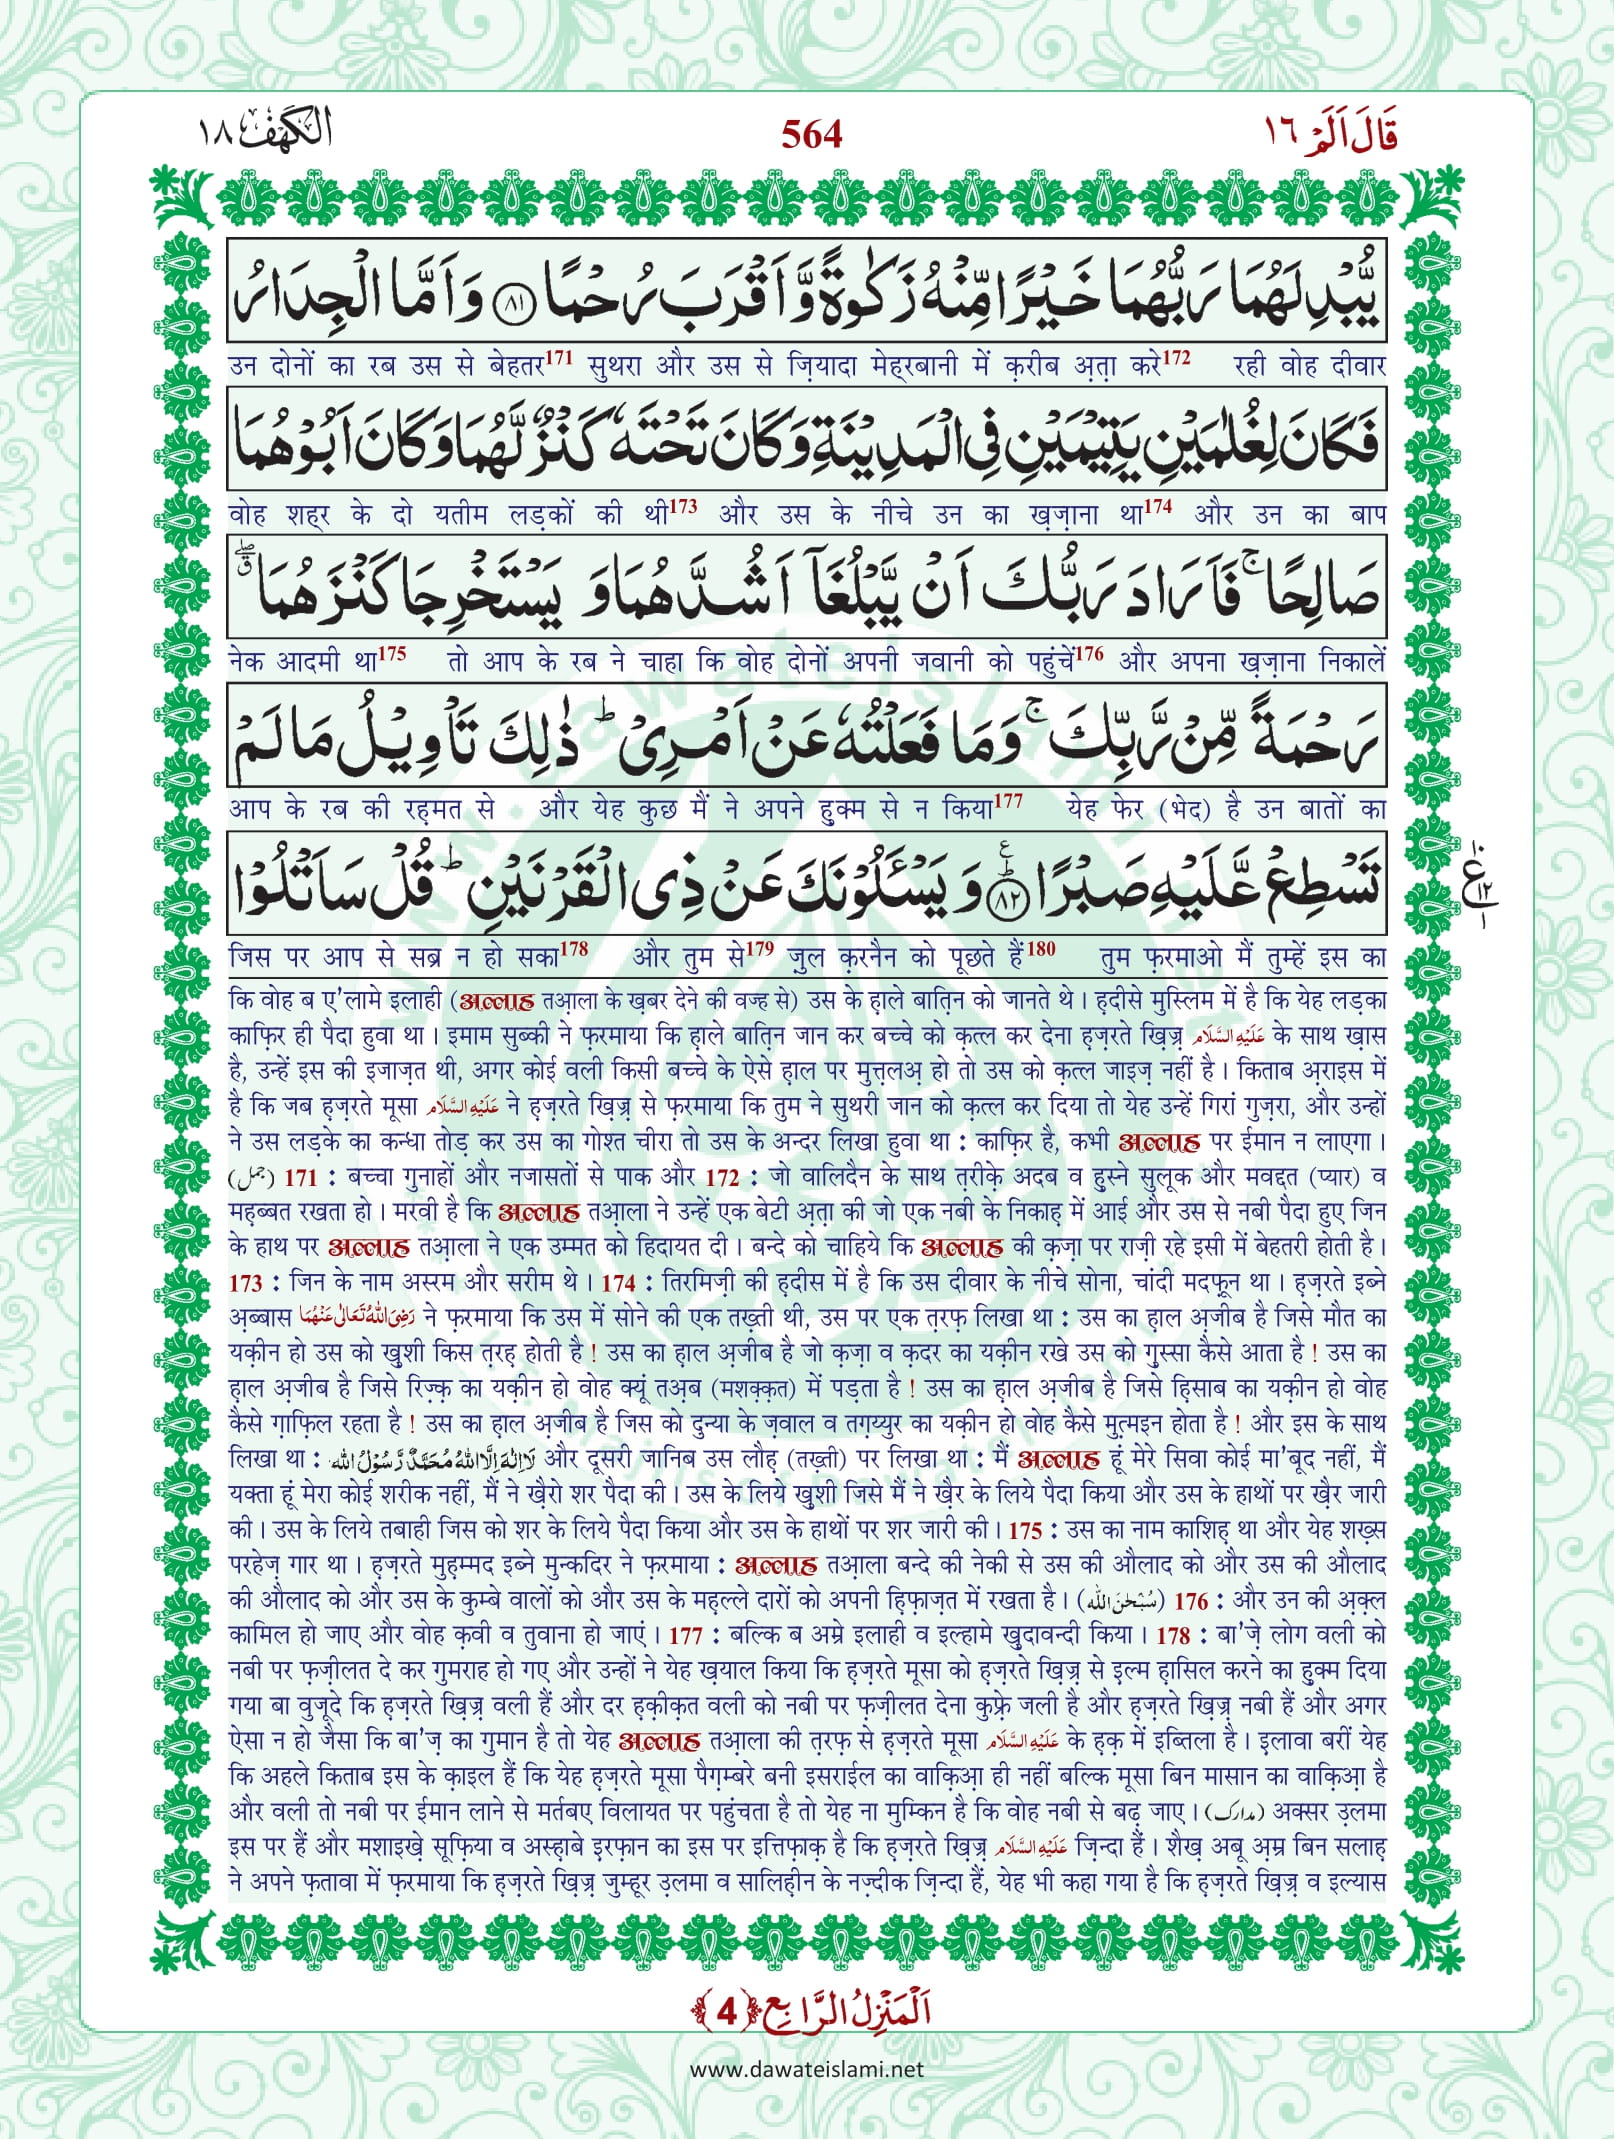 الكهف ١٨
564
قَالَ اَلَمْ ١٦
يُّبْدِلَهُمَا رَبُّهُمَا خَيْرًا مِّنْهُ زَكٰوةً وَّاَقْرَبَ رُحْمًا ﴿٨١﴾ وَاَمَّا الْجِدَارُ
उन दोनों का रब उस से बेहतर171 सुथरा और उस से ज़ियादा मेह्रबानी में क़रीब अ़ता़ करे172 रही वोह दीवार
فَكَانَ لِغُلٰمَيْنِ يَتِيْمَيْنِ فِى الْمَدِيْنَةِ وَكَانَ تَحْتَهٗ كَنْزٌ لَّهُمَا وَكَانَ اَبُوْهُمَا
वोह शह्र के दो यतीम लड़कों की थी173 और उस के नीचे उन का ख़ज़ाना था174 और उन का बाप
صَالِحًا ۚ فَاَرَادَ رَبُّكَ اَنْ يَّبْلُغَاۤ اَشُدَّهُمَا وَ يَسْتَخْرِجَا كَنْزَهُمَا ۖق
नेक आदमी था175 तो आप के रब ने चाहा कि वोह दोनों अपनी जवानी को पहुंचें176 और अपना ख़ज़ाना निकालें
رَحْمَةً مِّنْ رَّبِّكَ ۚ وَمَا فَعَلْتُهٗ عَنْ اَمْرِىْ ؕ ذٰلِكَ تَاْوِيْلُ مَا لَمْ
आप के रब की रह़मत से और येह कुछ मैं ने अपने हुक्म से न किया177 येह फेर (भेद) है उन बातों का
تَسْطِعْ عَّلَيْهِ صَبْرًا ﴿٨٢﴾ؕ۠ وَ يَسْـَٔلُوْنَكَ عَنْ ذِى الْقَرْنَيْنِ ؕ قُلْ سَاَتْلُوْا
١٠ ع ١٢ ١
जिस पर आप से सब्र न हो सका178 और तुम से179 ज़ुल क़रनैन को पूछते हैं180 तुम फ़रमाओ मैं तुम्हें इस का
कि वोह ब ए'लामे इलाही (अल्लाह तआ़ला के ख़बर देने की वज्ह से) उस के ह़ाले बात़िन को जानते थे। ह़दीसे मुस्लिम में है कि येह लड़का
काफ़िर ही पैदा हुवा था। इमाम सुब्की ने फ़रमाया कि ह़ाले बात़िन जान कर बच्चे को क़त्ल कर देना ह़ज़रते ख़िज़्र عَلَيْهِ السَّلَام के साथ ख़ास
है, उन्हें इस की इजाज़त थी, अगर कोई वली किसी बच्चे के ऐसे ह़ाल पर मुत्त़लअ़ हो तो उस को क़त्ल जाइज़ नहीं है। किताब अ़राइस में
है कि जब ह़ज़रते मूसा عَلَيْهِ السَّلَام ने ह़ज़रते ख़िज़्र से फ़रमाया कि तुम ने सुथरी जान को क़त्ल कर दिया तो येह उन्हें गिरां गुज़रा, और उन्हों
ने उस लड़के का कन्धा तोड़ कर उस का गोश्त चीरा तो उस के अन्दर लिखा हुवा था : काफ़िर है, कभी अल्लाह पर ईमान न लाएगा।
(جمل) 171 : बच्चा गुनाहों और नजासतों से पाक और 172 : जो वालिदैन के साथ त़रीक़े अदब व हुस्ने सुलूक और मवद्दत (प्यार) व
मह़ब्बत रखता हो। मरवी है कि अल्लाह तआ़ला ने उन्हें एक बेटी अ़त़ा की जो एक नबी के निकाह़ में आई और उस से नबी पैदा हुए जिन
के हाथ पर अल्लाह तआ़ला ने एक उम्मत को हिदायत दी। बन्दे को चाहिये कि अल्लाह की क़ज़ा पर राज़ी रहे इसी में बेहतरी होती है।
173 : जिन के नाम अस्रम और सरीम थे। 174 : तिरमिज़ी की ह़दीस में है कि उस दीवार के नीचे सोना, चांदी मदफ़ून था। ह़ज़रते इब्ने
अ़ब्बास رَضِىَ اللهُ تَعَالٰى عَنْهُمَا ने फ़रमाया कि उस में सोने की एक तख़्ती थी, उस पर एक त़रफ़ लिखा था : उस का ह़ाल अ़जीब है जिसे मौत का
यक़ीन हो उस को ख़ुशी किस त़रह़ होती है ! उस का ह़ाल अ़जीब है जो क़ज़ा व क़दर का यक़ीन रखे उस को ग़ुस्सा कैसे आता है ! उस का
ह़ाल अ़जीब है जिसे रिज़्क़ का यक़ीन हो वोह क्यूं तअ़ब (मशक़्क़त) में पड़ता है ! उस का ह़ाल अ़जीब है जिसे ह़िसाब का यक़ीन हो वोह
कैसे ग़ाफ़िल रहता है ! उस का ह़ाल अ़जीब है जिस को दुन्या के ज़वाल व तग़य्युर का यक़ीन हो वोह कैसे मुत़्मइन होता है ! और इस के साथ
लिखा था : لَآ اِلٰهَ اِلَّا اللهُ مُحَمَّدٌ رَّسُوْلُ الله और दूसरी जानिब उस लौह़ (तख़्ती) पर लिखा था : मैं अल्लाह हूं मेरे सिवा कोई मा'बूद नहीं, मैं
यक्ता हूं मेरा कोई शरीक नहीं, मैं ने ख़ैरो शर पैदा की। उस के लिये ख़ुशी जिसे मैं ने ख़ैर के लिये पैदा किया और उस के हाथों पर ख़ैर जारी
की। उस के लिये तबाही जिस को शर के लिये पैदा किया और उस के हाथों पर शर जारी की। 175 : उस का नाम काशिह़ था और येह शख़्स
परहेज़ गार था। ह़ज़रते मुह़म्मद इब्ने मुन्कदिर ने फ़रमाया : अल्लाह तआ़ला बन्दे की नेकी से उस की औलाद को और उस की औलाद
की औलाद को और उस के कुम्बे वालों को और उस के मह़ल्ले दारों को अपनी ह़िफ़ाज़त में रखता है। (سُبْحٰنَ الله) 176 : और उन की अ़क़्ल
कामिल हो जाए और वोह क़वी व तुवाना हो जाएं। 177 : बल्कि ब अम्रे इलाही व इल्हामे ख़ुदावन्दी किया। 178 : बा'ज़े लोग वली को
नबी पर फ़ज़ीलत दे कर गुमराह हो गए और उन्हों ने येह ख़याल किया कि ह़ज़रते मूसा को ह़ज़रते ख़िज़्र से इल्म ह़ासिल करने का हुक्म दिया
गया बा वुजूदे कि ह़ज़रते ख़िज़्र वली हैं और दर ह़क़ीक़त वली को नबी पर फ़ज़ीलत देना कुफ़्रे जली है और ह़ज़रते ख़िज़्र नबी हैं और अगर
ऐसा न हो जैसा कि बा'ज़ का गुमान है तो येह अल्लाह तआ़ला की त़रफ़ से ह़ज़रते मूसा عَلَيْهِ السَّلَام के ह़क़ में इब्तिला है। इ़लावा बरीं येह
कि अहले किताब इस के क़ाइल हैं कि येह ह़ज़रते मूसा पैग़म्बरे बनी इसराईल का वाक़िआ़ ही नहीं बल्कि मूसा बिन मासान का वाक़िआ़ है
और वली तो नबी पर ईमान लाने से मर्तबए विलायत पर पहुंचता है तो येह ना मुम्किन है कि वोह नबी से बढ़ जाए। (مدارک) अक्सर उ़लमा
इस पर हैं और मशाइख़े सूफ़िया व अस्ह़ाबे इ़रफ़ान का इस पर इत्तिफ़ाक़ है कि ह़ज़रते ख़िज़्र عَلَيْهِ السَّلَام ज़िन्दा हैं। शैख़ अबू अ़म्र बिन सलाह़
ने अपने फ़तावा में फ़रमाया कि ह़ज़रते ख़िज़्र जुम्हूर उ़लमा व सालिह़ीन के नज़्दीक ज़िन्दा हैं, येह भी कहा गया है कि ह़ज़रते ख़िज़्र व इल्यास
اَلْمَنْزِلُ الرَّابِعُ ﴿4﴾
www.dawateislami.net